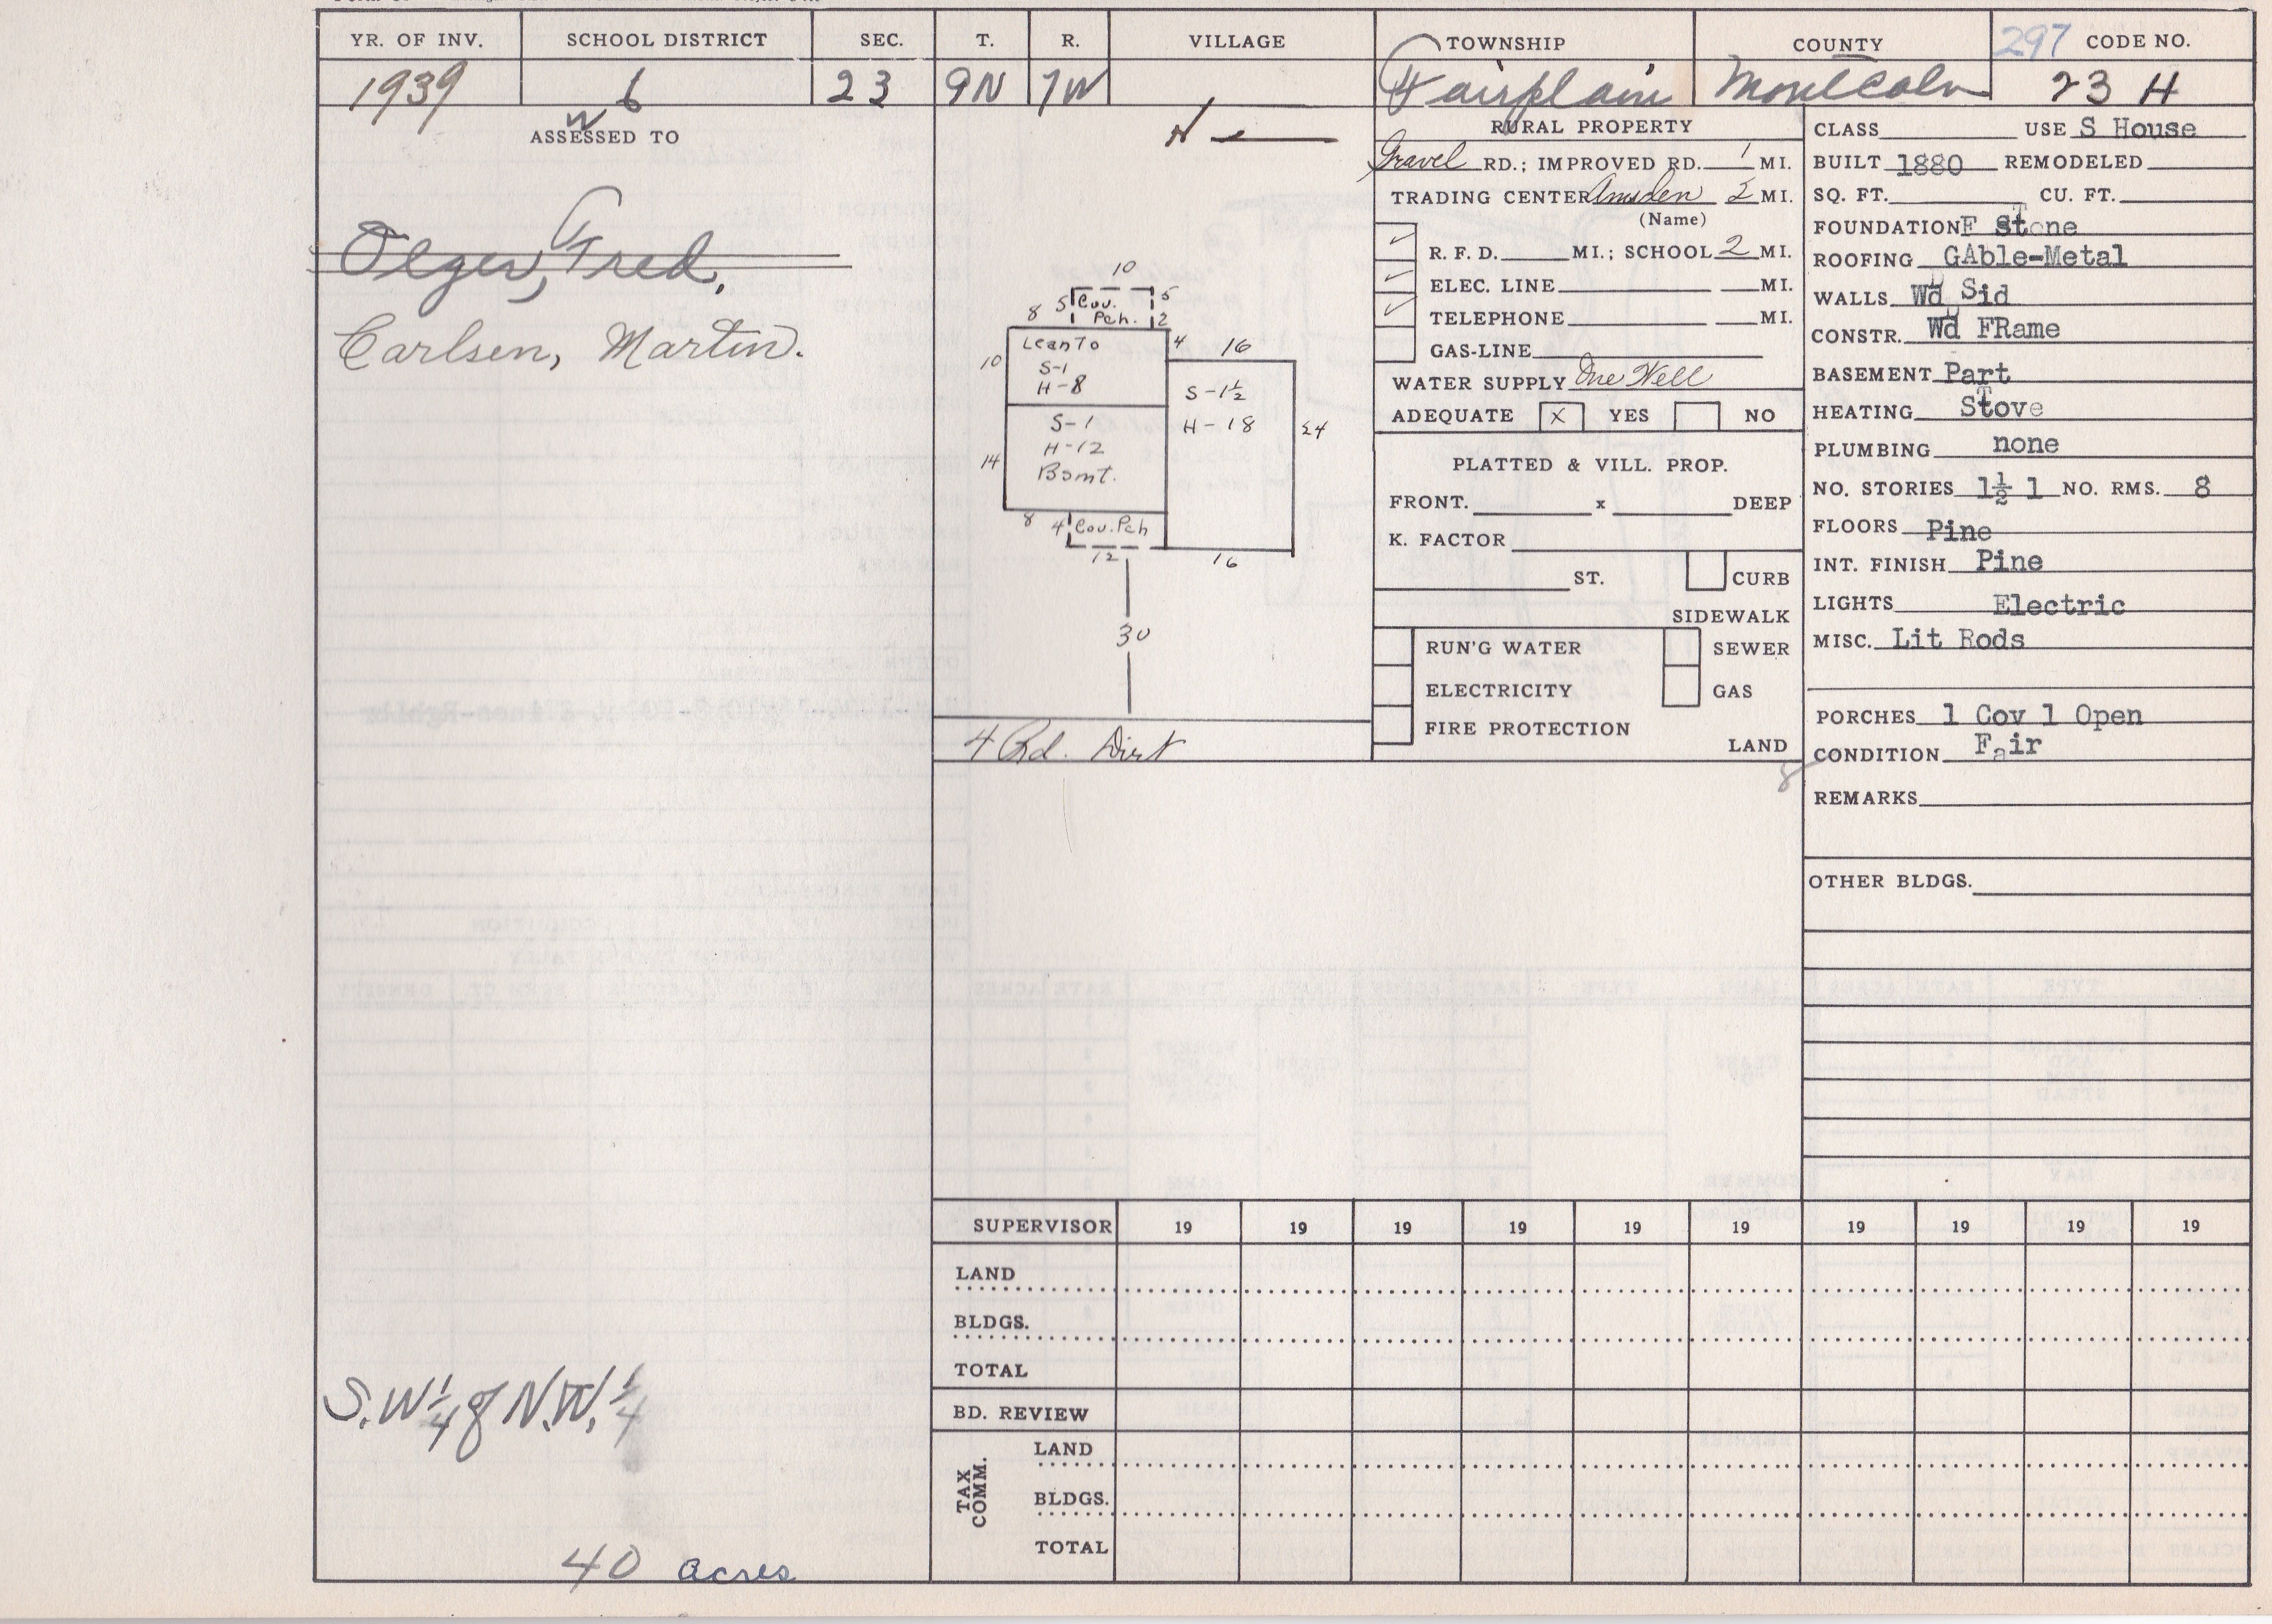 YR. OF INV. SCHOOL DISTRICT SEC. T. R. VILLAGE TOWNSHIP COUNTY 297 CODE NO.
1939 6 23 9N 7W Fairplain Montcalm 23 H
W
ASSESSED TO
Olger, Fred,
Carlsen, Martin.
S.W 1/4 of N.W. 1/4
40 acres
N
10
8 5 Cov. 5
Pch. 2
Lean To 4 16
10 S-1
H-8 S-1½
S-1 H-18 24
H-12
14 Bsmt.
8 4 Cov. Pch
12 16
30
4 Rd. Dirt
RURAL PROPERTY
Gravel RD.; IMPROVED RD. 1 MI.
TRADING CENTER Amsden 2 MI.
(Name)
✓ R. F. D. MI.; SCHOOL 2 MI.
✓ ELEC. LINE MI.
✓ TELEPHONE MI.
GAS-LINE
WATER SUPPLY One Well
ADEQUATE X YES NO
PLATTED & VILL. PROP.
FRONT. x DEEP
K. FACTOR
ST. CURB
SIDEWALK
RUN'G WATER SEWER
ELECTRICITY GAS
FIRE PROTECTION
LAND
8
CLASS USE S House
BUILT 1880 REMODELED
SQ. FT. CU. FT.
FOUNDATION F Stone
ROOFING GAble-Metal
WALLS Wd Sid
CONSTR. Wd FRame
BASEMENT Part
HEATING Stove
PLUMBING none
NO. STORIES 1½ 1 NO. RMS. 8
FLOORS Pine
INT. FINISH Pine
LIGHTS Electric
MISC. Lit Rods
PORCHES 1 Cov 1 Open
CONDITION Fair
REMARKS
OTHER BLDGS.
SUPERVISOR 19 19 19 19 19 19 19 19 19 19
LAND
BLDGS.
TOTAL
BD. REVIEW
TAX COMM.
LAND
BLDGS.
TOTAL